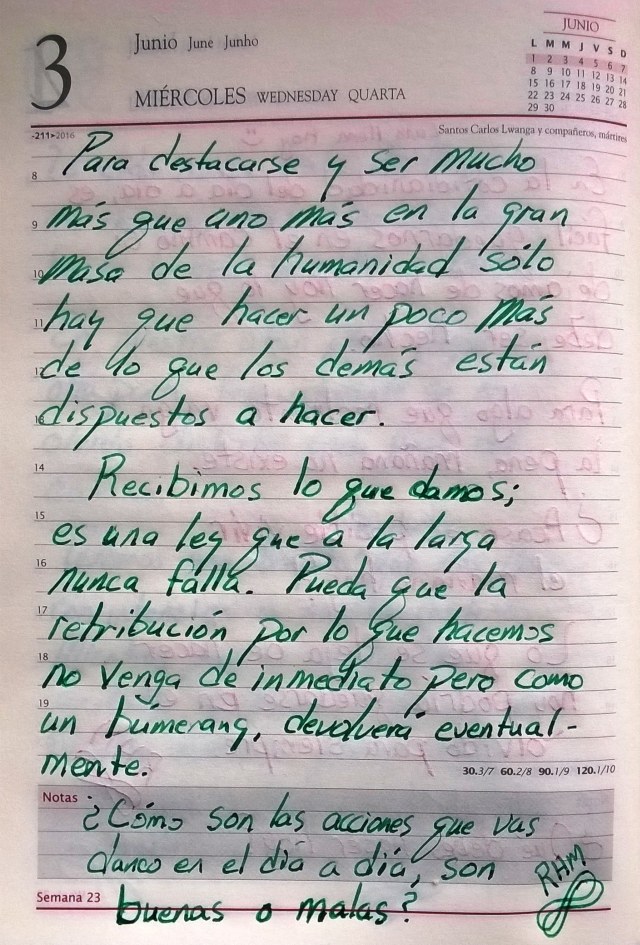 3
Junio June Junho
MIÉRCOLES WEDNESDAY QUARTA
JUNIO
L M M J V S D
1 2 3 4 5 6 7
8 9 10 11 12 13 14
15 16 17 18 19 20 21
22 23 24 25 26 27 28
29 30
-211▸2016
Santos Carlos Lwanga y compañeros, mártires
8 Para destacarse y ser mucho
9 más que uno más en la gran
10 masa de la humanidad sólo
11 hay que hacer un poco más
12 de lo que los demás están
13 dispuestos a hacer.
14 Recibimos lo que damos;
15 es una ley que a la larga
16 nunca falla. Pueda que la
17 retribución por lo que hacemos
18 no venga de inmediato pero como
19 un búmerang, devolverá eventual-
mente.
30.3/7 60.2/8 90.1/9 120.1/10
Notas
¿Cómo son las acciones que vas
danco en el día a día, son
buenas o malas?
RHM
Semana 23